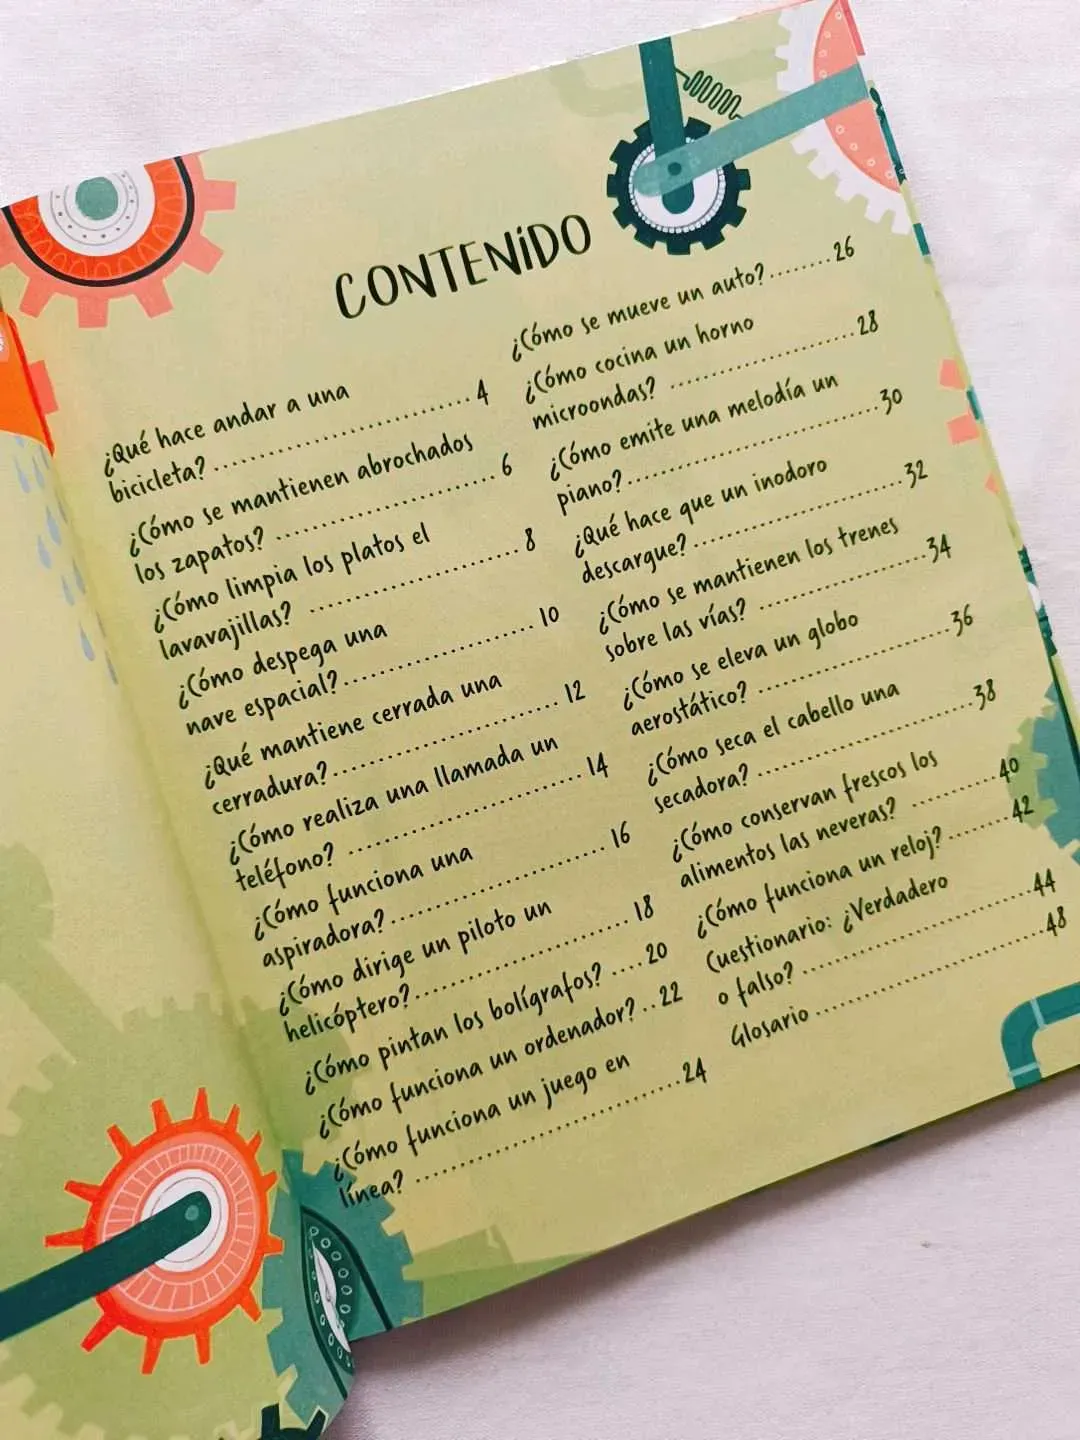 CONTENiDO
¿Qué hace andar a una
bicicleta? .............................. 4
¿Cómo se mantienen abrochados
los zapatos? .......................... 6
¿Cómo limpia los platos el
lavavajillas? ......................... 8
¿Cómo despega una
nave espacial? ...................... 10
¿Qué mantiene cerrada una
cerradura? ........................... 12
¿Cómo realiza una llamada un
teléfono? ............................ 14
¿Cómo funciona una
aspiradora? ......................... 16
¿Cómo dirige un piloto un
helicóptero? ........................ 18
¿Cómo pintan los bolígrafos? .... 20
¿Cómo funciona un ordenador? .. 22
¿Cómo funciona un juego en
línea? ................................ 24
¿Cómo se mueve un auto? ........ 26
¿Cómo cocina un horno
microondas? ..................... 28
¿Cómo emite una melodía un
piano? ............................ 30
¿Qué hace que un inodoro
descargue? ....................... 32
¿Cómo se mantienen los trenes
sobre las vías? .................. 34
¿Cómo se eleva un globo
aerostático? ..................... 36
¿Cómo seca el cabello una
secadora? ........................ 38
¿Cómo conservan frescos los
alimentos las neveras? ......... 40
¿Cómo funciona un reloj? ....... 42
Cuestionario: ¿Verdadero
o falso? .......................... 44
Glosario .......................... 48